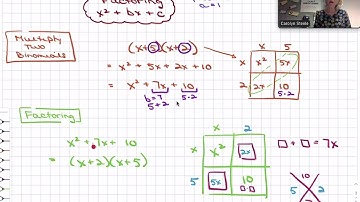 Factoring
x² + bx + c
a=1
Carolyn Steele
Multiply
Two
Binomials
(x+5)(x+2)
= x² + 5x + 2x + 10
= x² + 7x + 10
b=7
5·2
5+2
x 5
x x² 5x
2 2x 10
5·2
Factoring
x² + 7x + 10
= (x+2)(x+5)
x 2
x x² 2x
5 5x 10
□·□
□ + □ = 7x
10
5 2